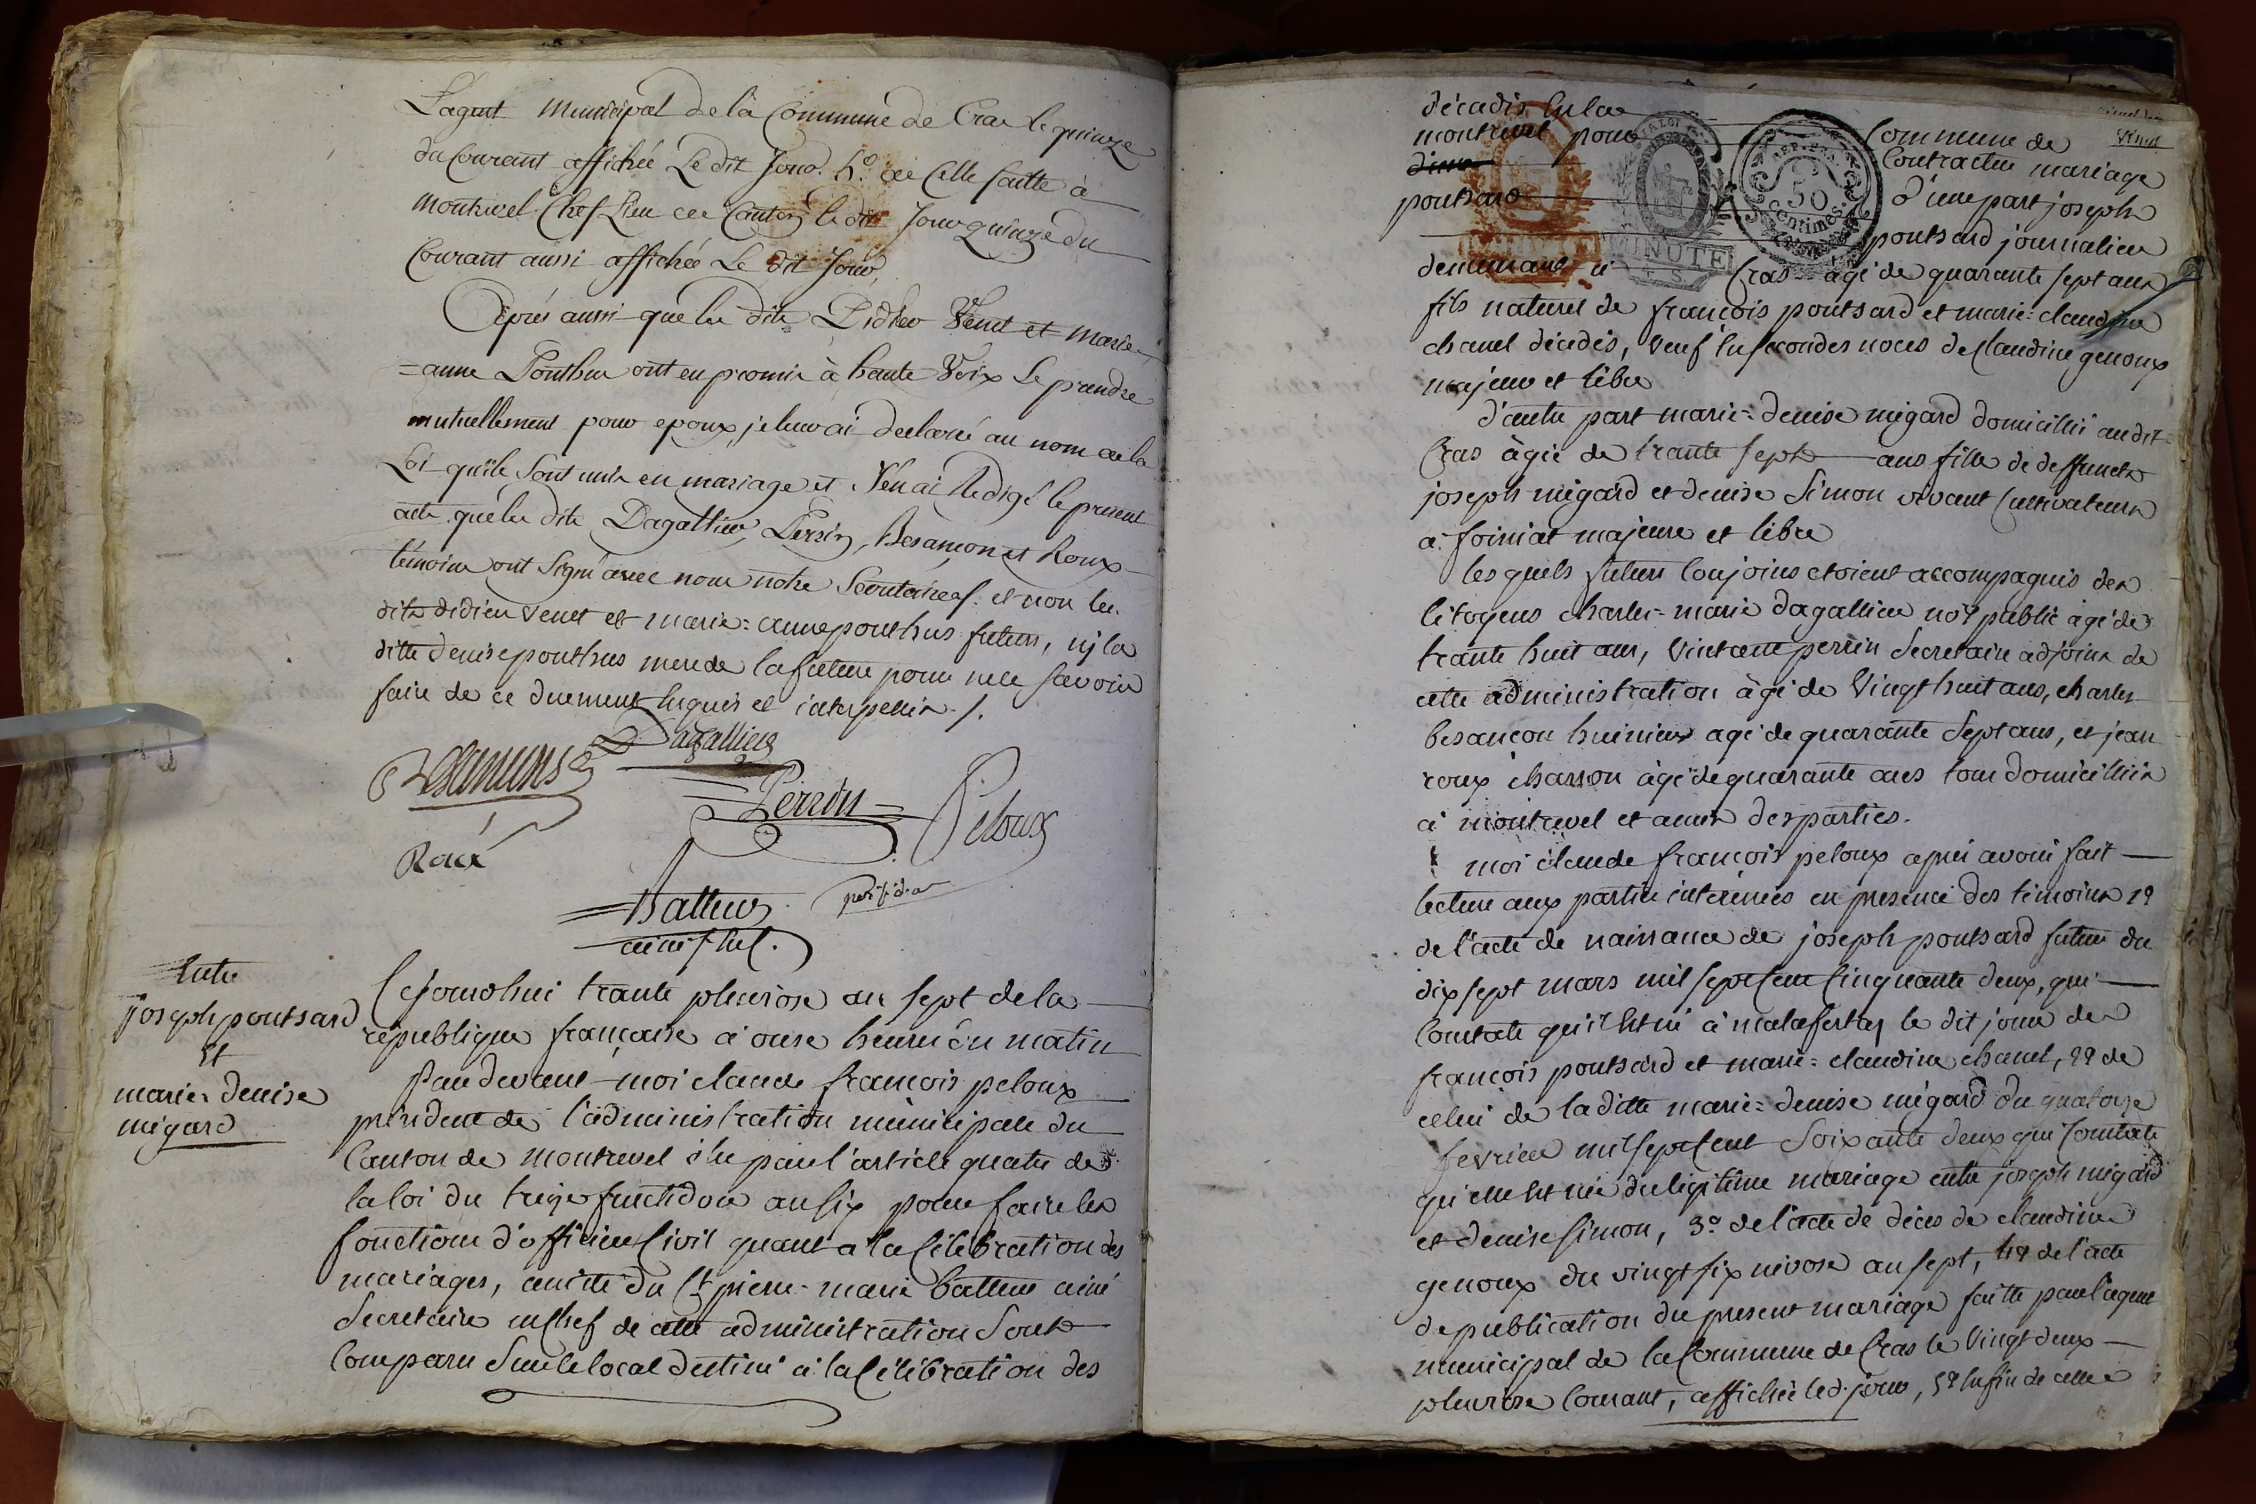 L'agent Municipal de la Commune de Cras le quinze
du Courant affichée Le dit Jour. 5.º de Celle faitte à
Montrevel Chef Lieu de Canton le dit Jour quinze du
Courant aussi affichée Le dit Jour,
Après aussi que les dits Didier Venet et Marie
=anne Ponthus ont eu promis à haute Voix Se prendre
mutuellement pour epoux, je leur ai declaré au nom de la
Loi qu'ils Sont unis en mariage et J'en ai Redigé le present
acte que les dits Dagallier, Perrin, Besançon et Roux
témoins ont Signé avec nous notre Secretaire /. et non les
dits didier Venet et marie=anne ponthus futurs, nj la
ditte denise ponthus mere de la future pour ne le Savoir
faire de ce duement Enquis et interpellés /.
Besancons Dagallier
Perrin Peloux
Roux
Batteur presidt
ainé s. chef.
Entre
joseph pontsard
Et
marie=denise
migard
Cejourdhui trante pluviose an sept de la
republique française à onse heures du matin
Par devant moi claude françois peloux
président de l'administration municipale du
Canton de montrevel élu par l'article quatre de
la loi du treize fructidor an six pour faire les
fonctions d'officier Civil quant a la Célébration des
mariages, assisté du Ct. pierre-marie batteur ainé
Secretaire en Chef de cette administration Sont
Comparu Sur le local destiné à la Célébration des
décadis En la Commune de
montrevel pour Contracter mariage
d'une part joseph
pontsard pontsard journalier
demeurant à Cras âgé de quarante sept ans
fils naturel de françois pontsard et marie=claudine
chanel décédés, Veuf En secondes noces de Claudine genoux
majeur et libre
d'autre part marie=denise migard domiciliée audit
Cras âgée de trante sept ans fille de deffuncts
joseph migard et denise Simon vivant Cultivateurs
à foissiat majeure et libre
les quels futurs Conjoins etoient accompagnés des
Citoyens charles=marie dagallier not. public âgé de
trante huit ans, Vincent perrin Secretaire adjoint de
cette administration âgé de Vingt huit ans, charles
besançon huissier agé de quarante Sept ans, et jean
roux charron âgé de quarante ans tous domiciliés
à montrevel et amis des parties.
moi claude françois peloux après avoir fait
lecture aux parties interessées en presence des témoins 1º
de l'acte de naissance de joseph pontsard futur du
dix sept mars mil sept Cent Cinquante deux, qui
Constate qu'il Est né à malafertaz le dit jour de
françois pontsard et marie=claudine chanel, 2º de
celui de la ditte marie=denise migard du quatorze
fevrier mil sept Cent Soixante deux qui Constate
qu'elle Est née du legitime mariage entre joseph migard
et denise Simon, 3º de l'acte de décès de claudine
genoux du vingt six nivose an sept, 4º de l'acte
de publication du present mariage faitte par l'agent
municipal de la Commune de Cras le Vingt deux
pluviose Courant, affichée led. jour, 5º Enfin de celle
LA LOI
MINUTE
REP. FRA.
50
Centimes.